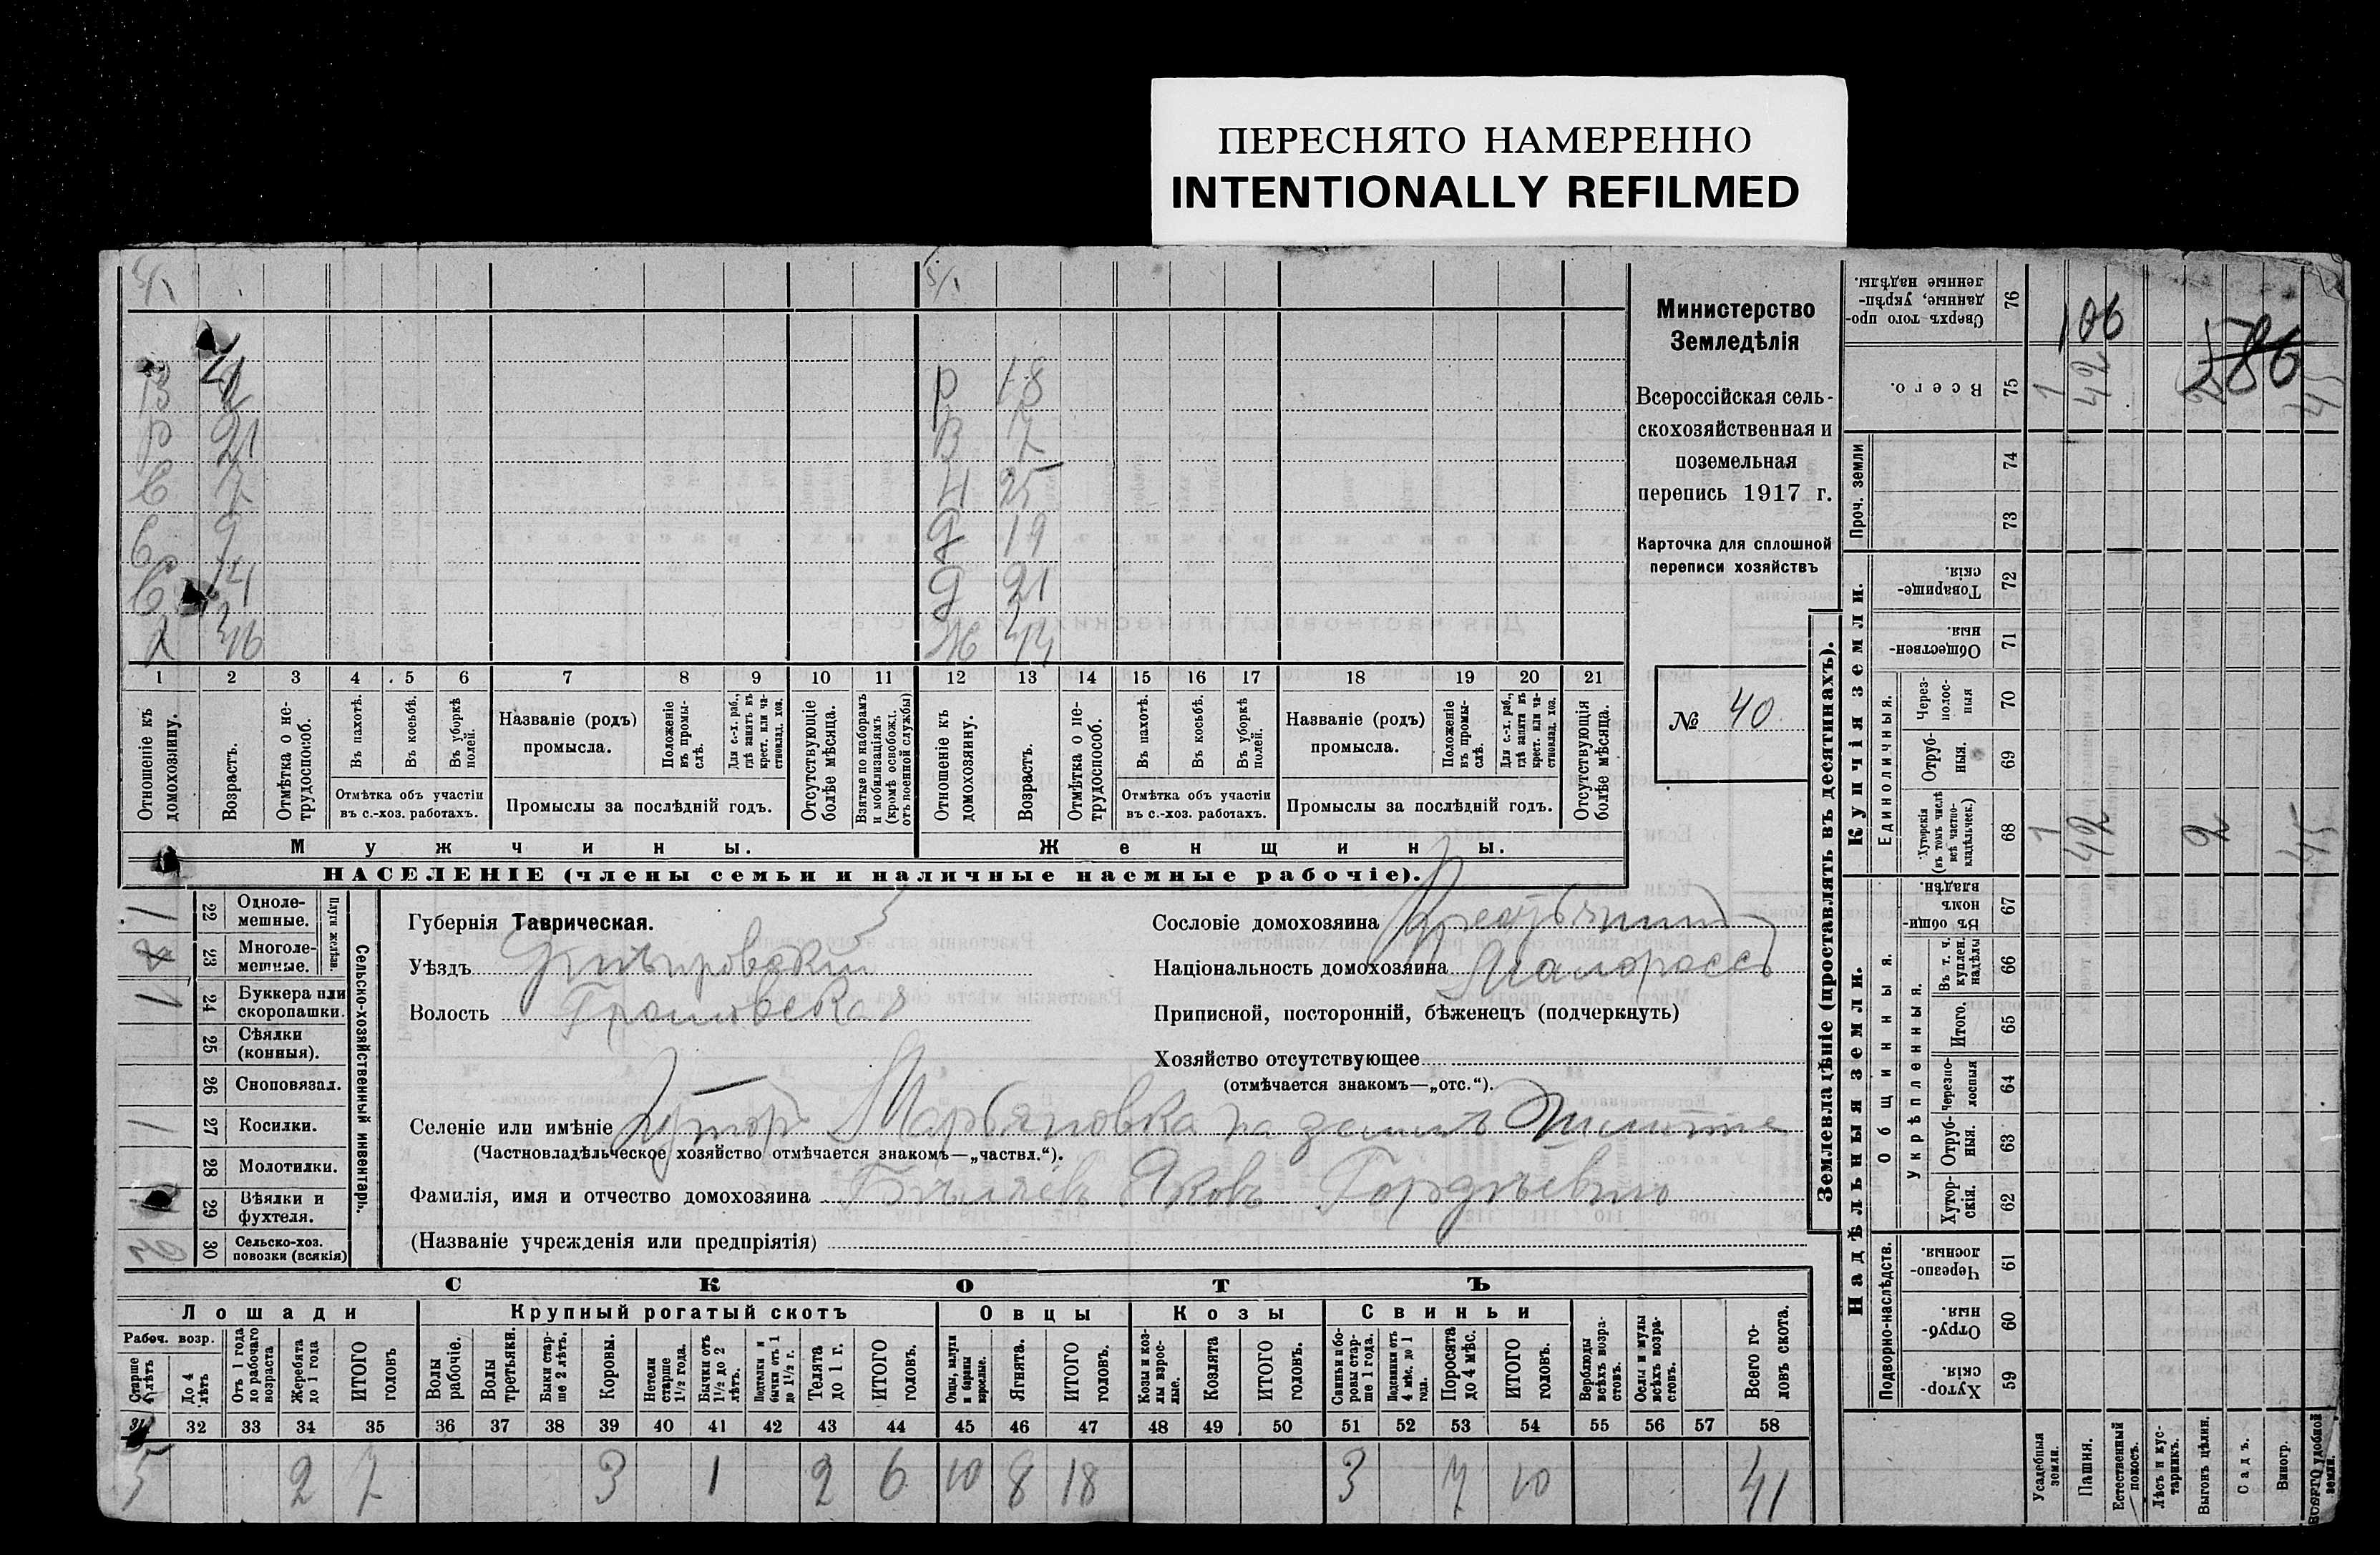 ПЕРЕСНЯТО НАМЕРЕННО
INTENTIONALLY REFILMED
5/1
5/1
В
р 18
р 21
В 7
С 7
Н 25
С 9
д 19
С 14
д 21
Х 46
Ж 44
1 2 3 4 5 6 7 8 9 10 11 12 13 14 15 16 17 18 19 20 21
Отношеніе къ домохозяину.
Возрастъ.
Отмѣтка о не-трудоспособ.
Въ пахотѣ.
Въ косьбѣ.
Въ уборкѣ полей.
Отмѣтка объ участіи
въ с.-хоз. работахъ.
Названіе (родъ)
промысла.
Положеніе въ промы-слѣ.
Для с.-х. раб., гдѣ занятъ въ крест. или ча-стновлад. хоз.
Промыслы за послѣдній годъ.
Отсутствующіе болѣе мѣсяца.
Взятые по наборамъ и мобилизаціямъ (кромѣ освобожд. отъ военной службы)
Отношеніе къ домохозяину.
Возрастъ.
Отмѣтка о не-трудоспособ.
Въ пахотѣ.
Въ косьбѣ.
Въ уборкѣ полей.
Отмѣтка объ участіи
въ с.-хоз. работахъ.
Названіе (родъ)
промысла.
Положеніе въ промы-слѣ.
Для с.-х. раб., гдѣ занята въ крест. или ча-стновлад. хоз.
Промыслы за послѣдній годъ.
Отсутствующія болѣе мѣсяца.
Мужчины.
Женщины.
НАСЕЛЕНІЕ (члены семьи и наличные наемные рабочіе).
Министерство
Земледѣлія
Всероссійская сель-
скохозяйственная и
поземельная
перепись 1917 г.
Карточка для сплошной
переписи хозяйствъ
№ 40
1 22 Одноле-мешные.
23 Многоле-мешные.
Плуги желѣзн.
1 24 Буккера или скоропашки.
25 Сѣялки (конныя).
26 Сноповязал.
1 27 Косилки.
28 Молотилки.
29 Вѣялки и фухтеля.
2 30 Сельско-хоз. повозки (всякія)
Сельско-хозяйственный инвентарь.
Губернія Таврическая.
Уѣздъ Днѣпровскій
Волость Громовская
Сословіе домохозяина Крестьянинъ
Національность домохозяина Малороссъ
Приписной, посторонній, бѣженецъ (подчеркнуть)
Хозяйство отсутствующее
(отмѣчается знакомъ—„отс.“).
Селеніе или имѣніе Хуторъ Марьяновка на землѣ
(Частновладѣльческое хозяйство отмѣчается знакомъ—„частвл.“).
Фамилія, имя и отчество домохозяина Бѣляевъ Яковъ Гордѣевичъ
(Названіе учрежденія или предпріятія)
СКОТЪ
Лошади
Крупный рогатый скотъ
Овцы
Козы
Свиньи
Рабоч. возр.
Старше 4 лѣтъ
До 4 лѣтъ
Отъ 1 года до рабочаго возраста
Жеребята до 1 года
ИТОГО головъ
Волы рабочіе.
Волы третьяки.
Быки стар-ше 2 лѣтъ.
Коровы.
Нетели старше 1½ года.
Бычки отъ 1½ до 2 лѣтъ.
Подтелки и бычки отъ 1 до 1½ г.
Телята до 1 г.
ИТОГО головъ.
Овцы, валухи и бараны взрослые.
Ягнята.
ИТОГО головъ.
Козы и коз-лы взрос-лые.
Козлята
ИТОГО головъ.
Свиньи и бо-ровы стар-ше 1 года.
Подсвинки отъ 4 мѣс. до 1 года.
Поросята до 4 мѣс.
ИТОГО головъ.
Верблюды всѣхъ возра-стовъ.
Ослы и мулы всѣхъ возра-стовъ.
Всего го-ловъ скота.
31 32 33 34 35 36 37 38 39 40 41 42 43 44 45 46 47 48 49 50 51 52 53 54 55 56 57 58
5 2 7 3 1 2 6 10 8 18 3 7 10 41
Землевладѣніе (проставлять въ десятинахъ).
Купчія земли.
Надѣльныя земли.
Сверхъ того про-данные, укрѣп-ленные надѣлы. 76
106
286
Всего. 75 1 42 2 45
Проч. земли 74
73
Товарище-скія. 72
Обществен-ныя. 71
Единоличныя.
Через-полос-ныя 70
Отруб-ныя. 69
Хуторскія (въ томъ числѣ всѣ частно-владѣльческ.) 68 1 42 2 45
Общинныя.
Въ общин-номъ владѣн. 67
Въ т. ч. куплен. надѣлы 66
Укрѣпленныя.
Итого. 65
Черезпо-лосныя 64
Отруб-ныя. 63
Хутор-скія. 62
Подворно-наслѣдств.
Черезпо-лосныя 61
Отруб-ныя. 60
Хутор-скія. 59
Усадебныя земли.
Пашня.
Естественный покосъ.
Лѣсъ и кус-тарникъ.
Выгонъ цѣлин.
Садъ.
Виногр.
ВСЕГО удобной земли.